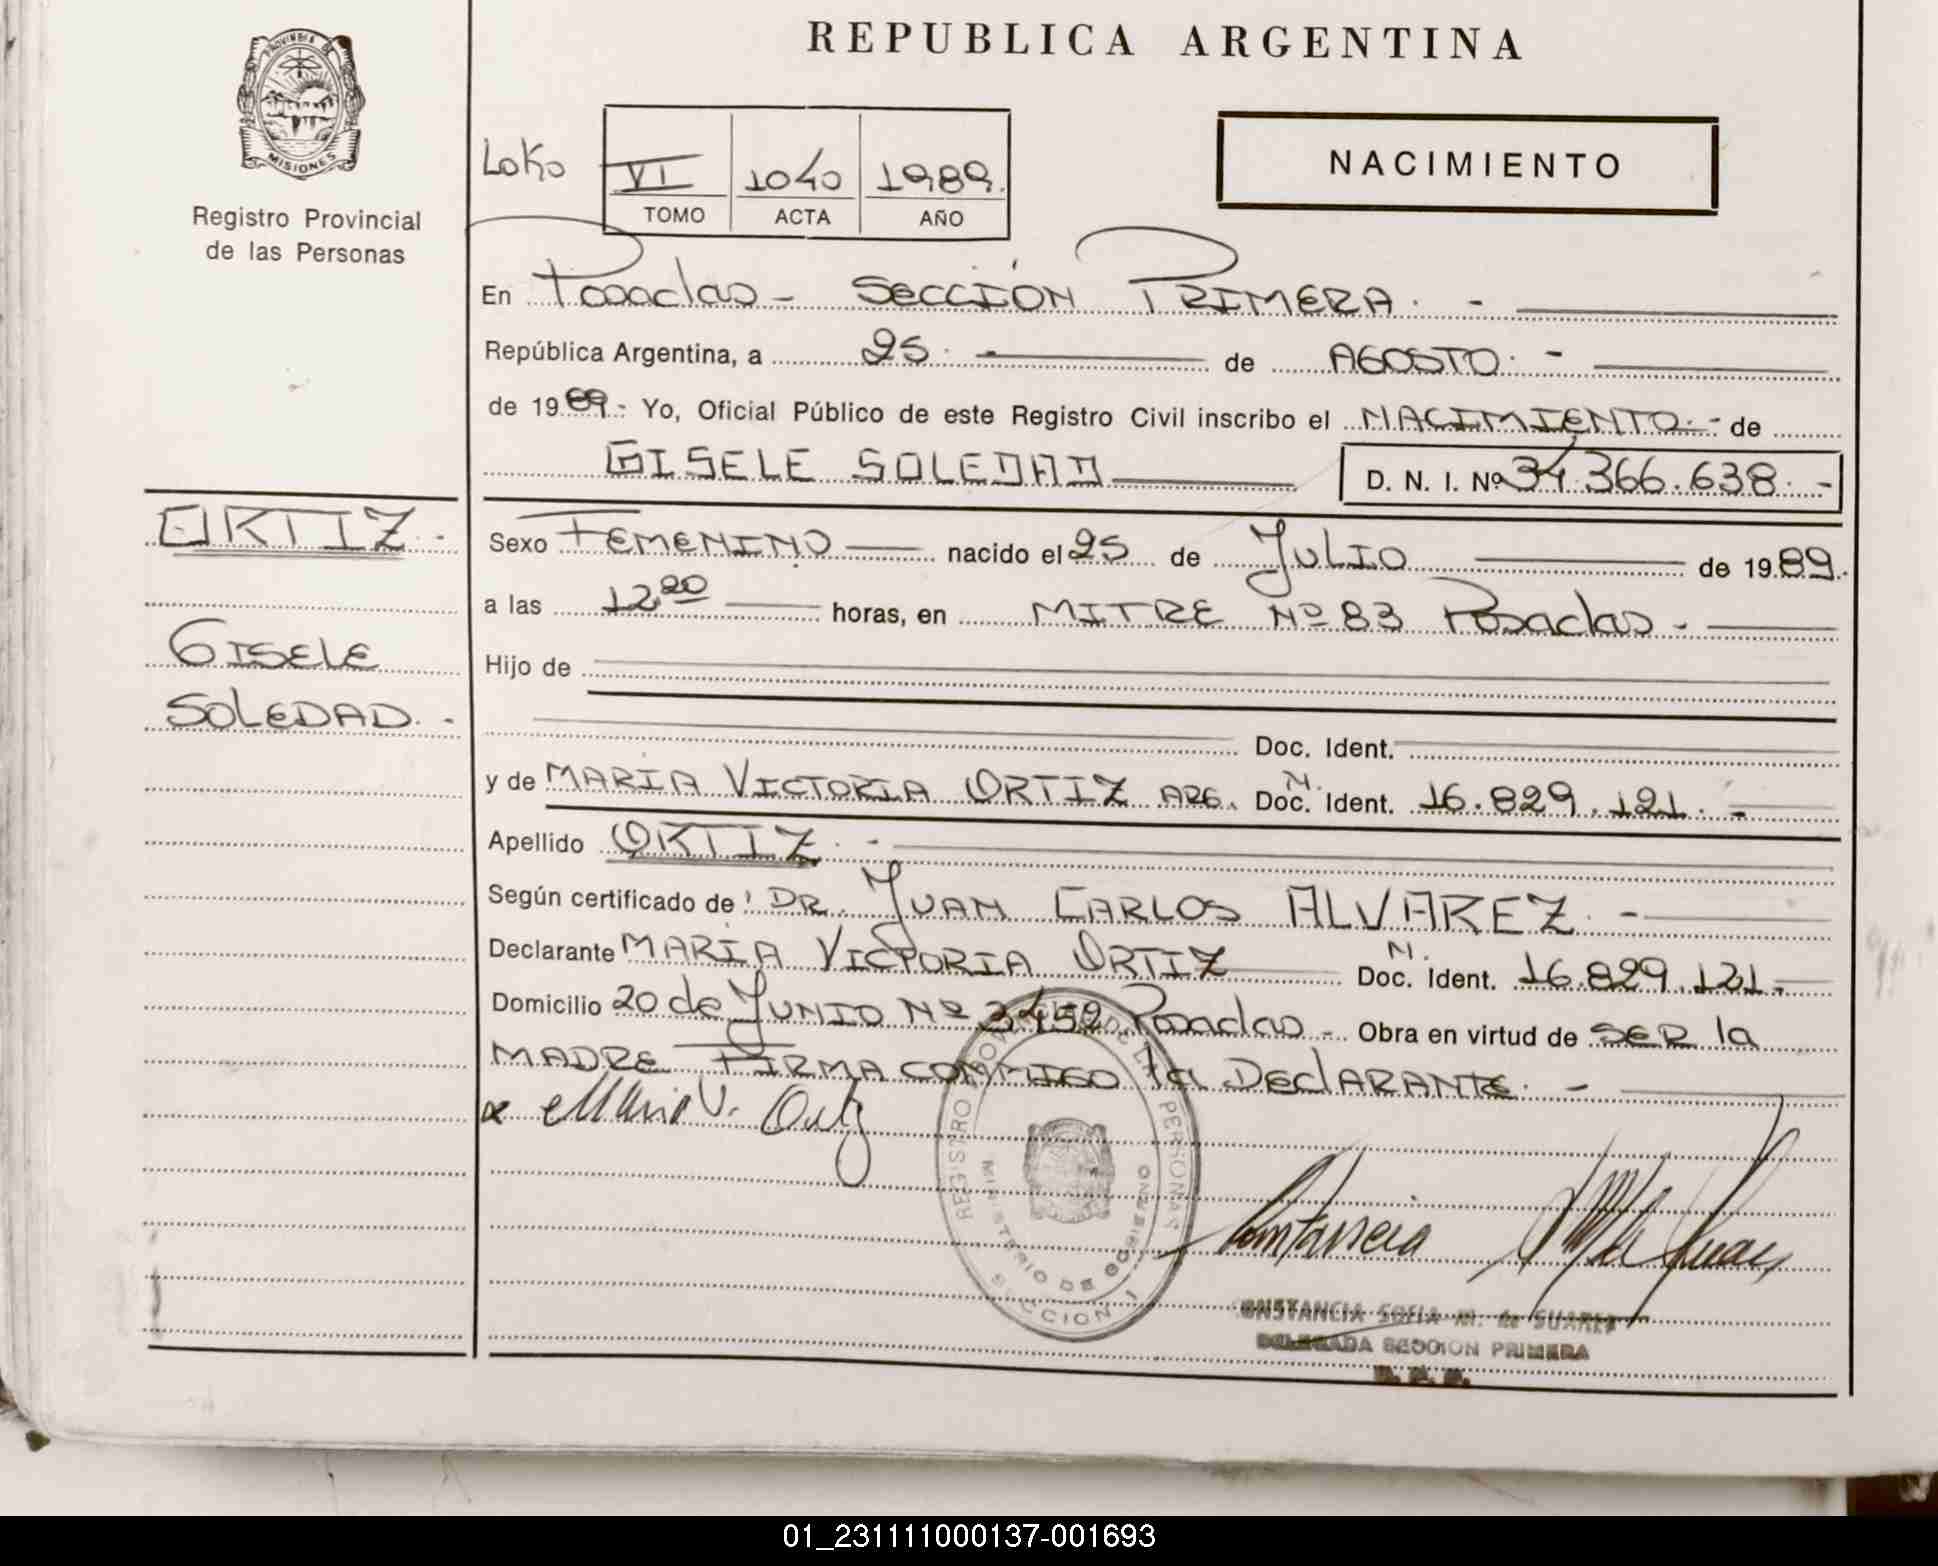 REPUBLICA ARGENTINA
PROVINCIA DE
MISIONES
Registro Provincial
de las Personas
NACIMIENTO
VI 1040 1989.
TOMO ACTA AÑO
En Posadas - SECCIÓN PRIMERA. -
República Argentina, a 25. - de AGOSTO. -
de 1989.- Yo, Oficial Público de este Registro Civil inscribo el NACIMIENTO. - de
GISELE SOLEDAD D. N. I. Nº 34.366.638. -
ORTIZ. -
Sexo FEMENINO nacido el 25 de JULIO de 1989.
a las 12 20 horas, en MITRE Nº 83 Posadas -
GISELE
SOLEDAD. -
Hijo de
Doc. Ident.
y de MARIA VICTORIA ORTIZ ARG. Doc. Ident. M. 16.829.121. -
Apellido ORTIZ. -
Según certificado de DR. JUAN CARLOS ALVAREZ. -
Declarante MARIA VICTORIA ORTIZ Doc. Ident. M. 16.829.121. -
Domicilio 20 de JUNIO Nº 3452 Posadas - Obra en virtud de SER la
MADRE FIRMA CONMIGO la DEClARANTE. -
Maria V. Ortiz
REGISTRO PROVINCIAL DE LAS PERSONAS
MINISTERIO DE GOBIERNO
SECCION 1
CONSTANCIA SOFIA M. de SUAREZ
DELEGADA SECCION PRIMERA
01_231111000137-001693